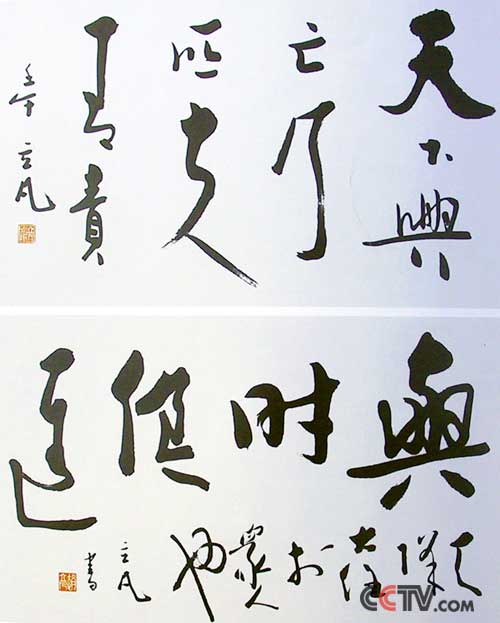 天下興
亡乃
匹夫
有責
壬午 立凡
與時俱進
天
將
大任
於
眾人
也
立凡
書
CCTV.com